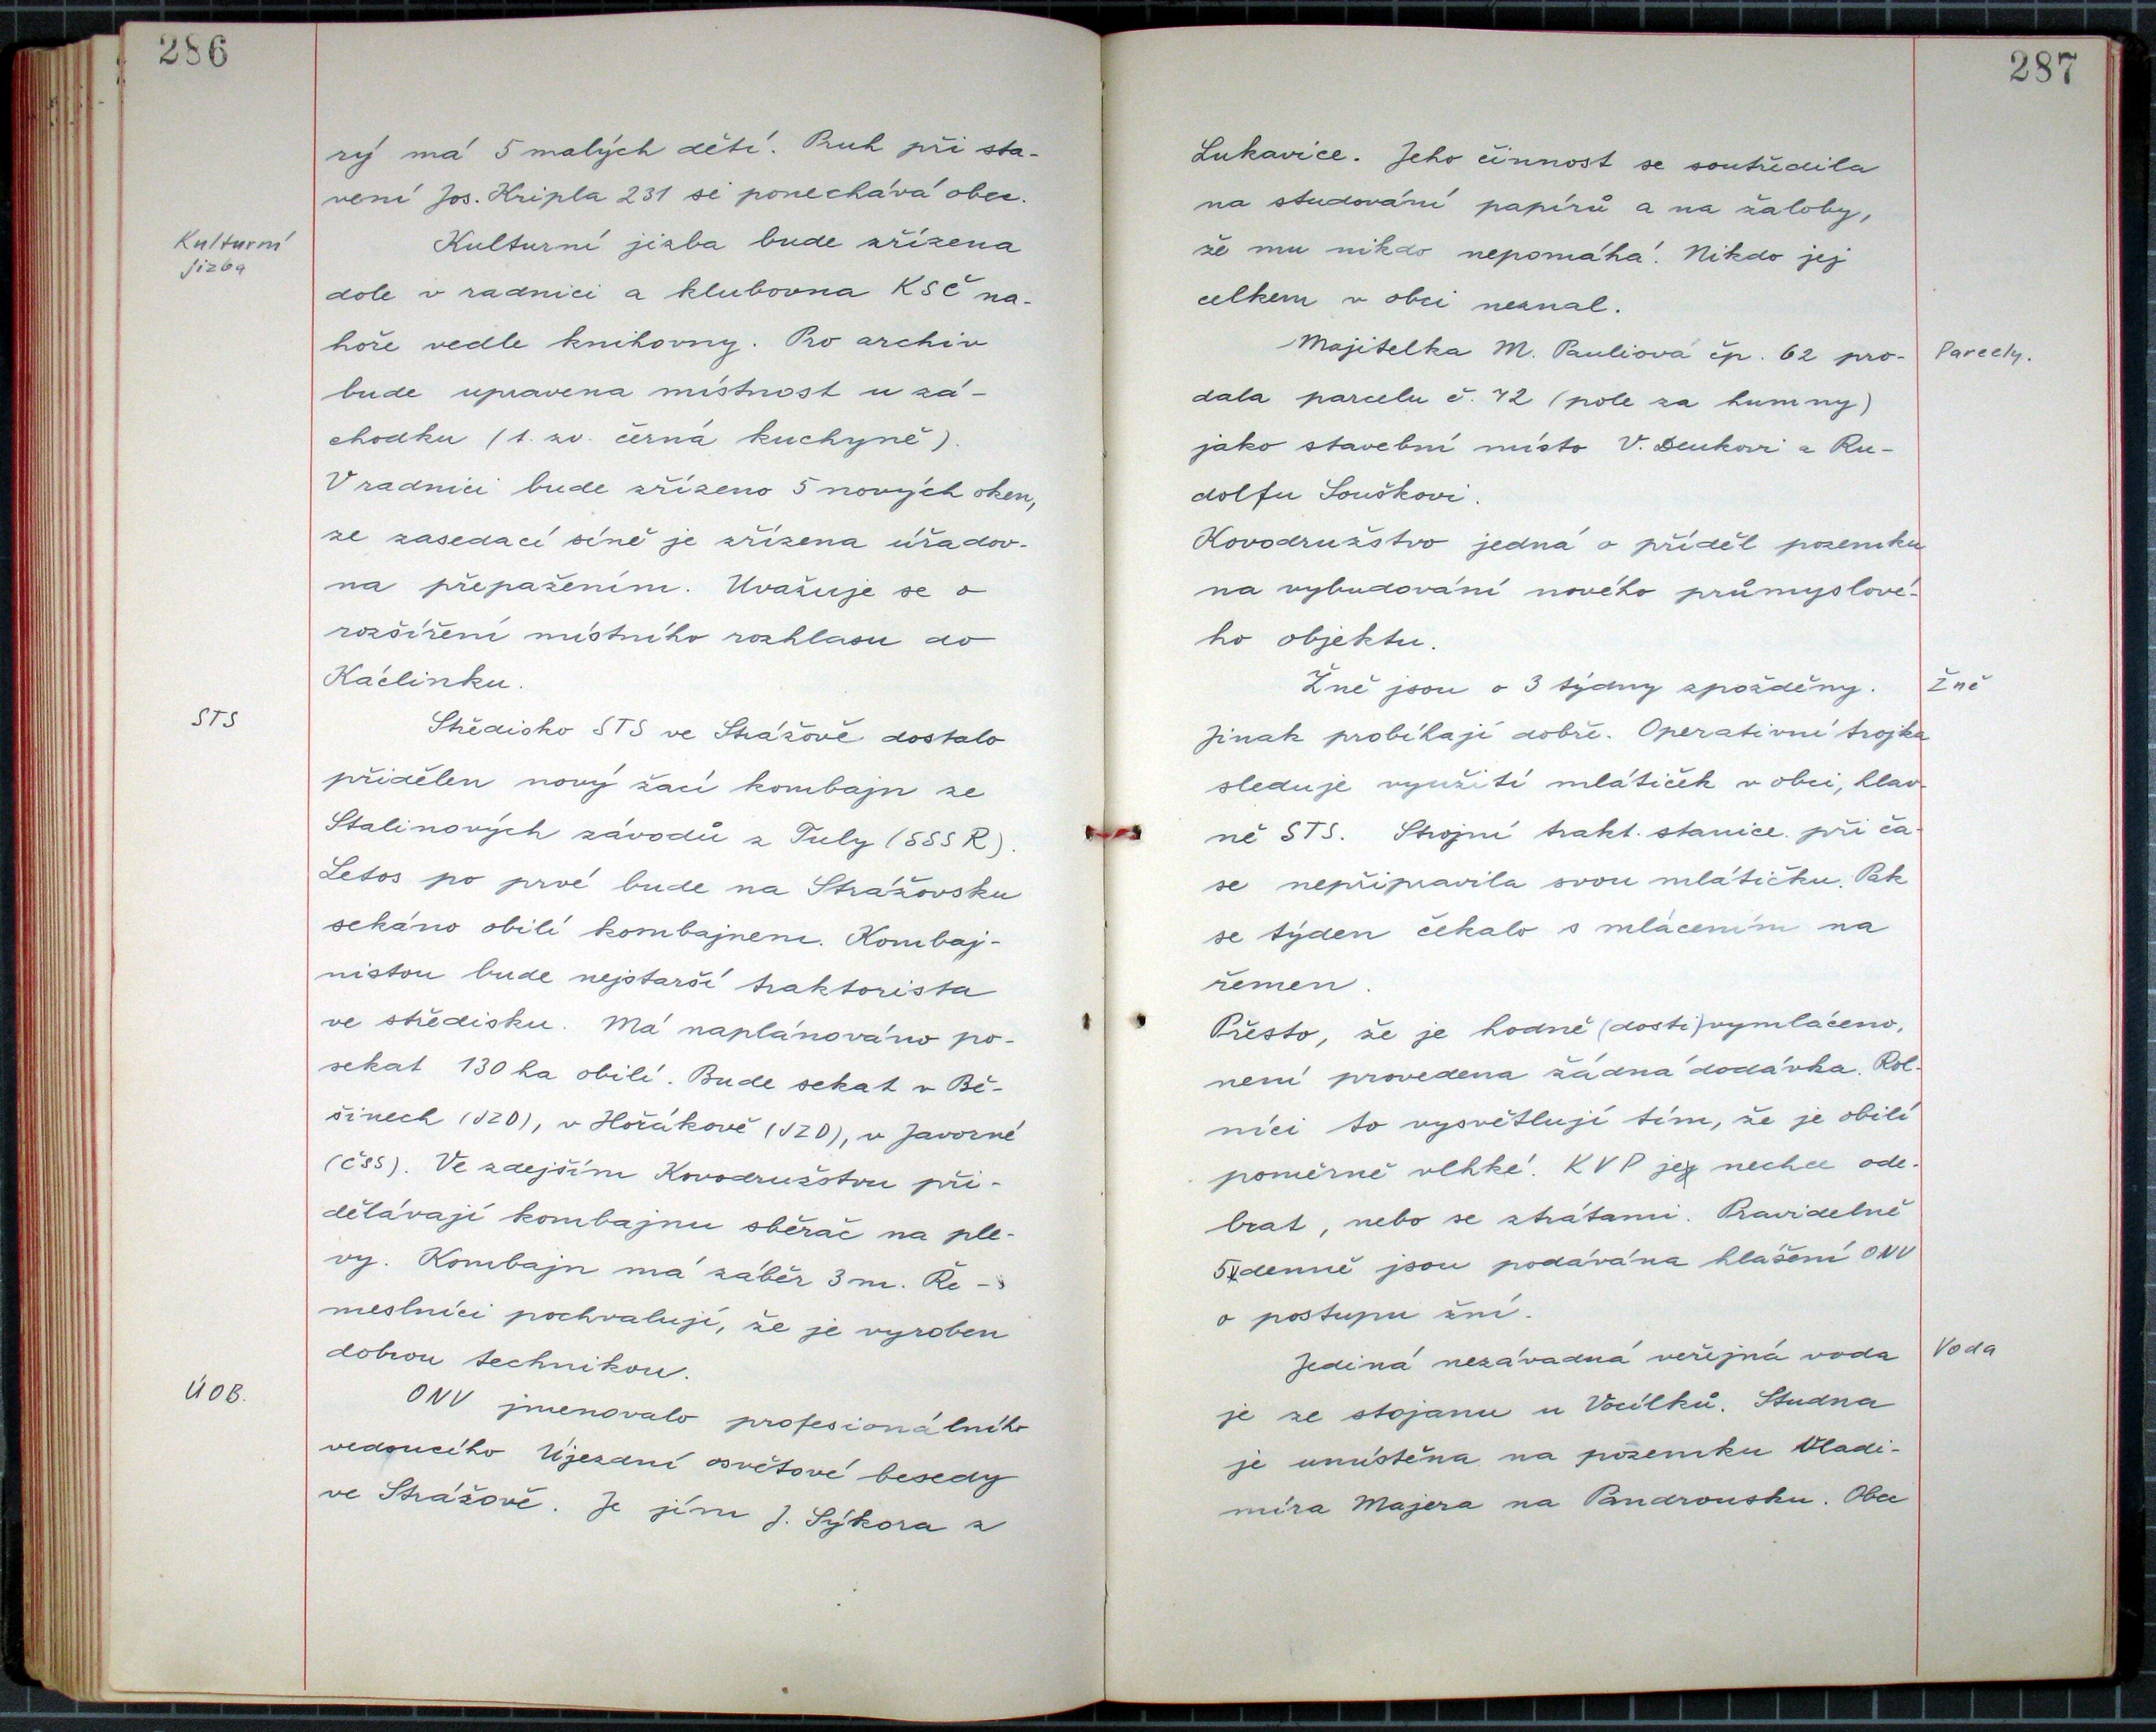 286
rý má 5 malých dětí. Pruh při sta-
vení Jos. Kripla 231 si ponechává obec.
Kulturní
jizba
Kulturní jizba bude zřízena
dole v radnici a klubovna KSČ na-
hoře vedle knihovny. Pro archiv
bude upravena místnost u zá-
chodku (t. zv. černá kuchyně).
V radnici bude zřízeno 5 nových oken,
ze zasedací síně je zřízena úřadov-
na přepažením. Uvažuje se o
rozšíření místního rozhlasu do
Káclinku.
STS
Středisko STS ve Strážově dostalo
přidělen nový žací kombajn ze
Stalinových závodů z Tuly (SSSR).
Letos po prvé bude na Strážovsku
sekáno obilí kombajnem. Kombaj-
nistou bude nejstarší traktorista
ve středisku. Má naplánováno po-
sekat 130 ha obilí. Bude sekat v Bě-
šinech (JZD), v Hořákově (JZD), v Javorné
(ČSS). Ve zdejším Kovodružstvu při-
dělávají kombajnu sběrač na ple-
vy. Kombajn má záběr 3 m. Ře-
meslníci pochvalují, že je vyroben
dobrou technikou.
ÚOB.
ONV jmenovalo profesionálního
vedoucího Újezdní osvětové besedy
ve Strážově. Je jím J. Sýkora z
287
Lukavice. Jeho činnost se soutředila
na studování papírů a na žaloby,
že mu nikdo nepomáhá. Nikdo jej
celkem v obci neznal.
Majitelka M. Pauliová čp. 62 pro-
Parcely.
dala parcelu č. 72 (pole za humny)
jako stavební místo V. Deukovi a Ru-
dolfu Souškovi.
Kovodružstvo jedná o příděl pozemku
na vybudování nového průmyslové-
ho objektu.
Žně jsou o 3 týdny zpožděny.
Žně
Jinak probíhají dobře. Operativní trojka
sleduje využití mlátiček v obci, hlav-
ně STS. Strojní trakt. stanice při ča-
se nepřipravila svou mlátičku. Pak
se týden čekalo s mlácením na
řemen.
Přesto, že je hodně (dosti) vymláceno,
není provedena žádná dodávka. Rol-
níci to vysvětlují tím, že je obilí
poměrně vlhké. KVP jej nechce ode-
brat, nebo se ztrátami. Pravidelně
5 denně jsou podávána hlášení ONV
o postupu žní.
Jediná nezávadná veřejná voda
Voda
je ze stojanu u Vocílků. Studna
je umístěna na pozemku Vladi-
míra Majera na Pandrousku. Obec